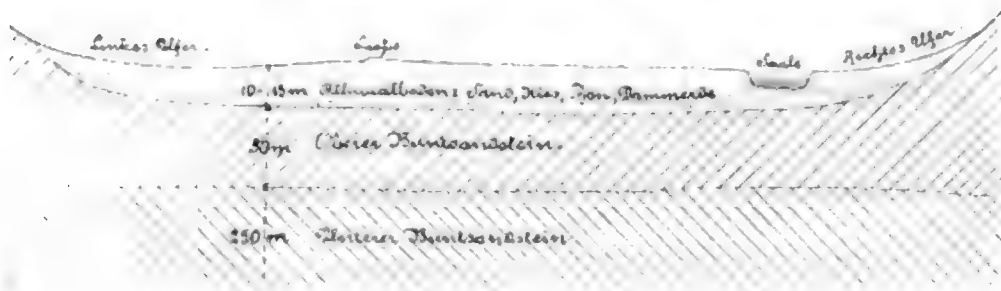 Linkes Ufer.
Saale
Rechtes Ufer
10-15m Alluvialboden: Sand, Kies, Ton, Dammerde
50m Oberer Buntsandstein.
250 m Unterer Buntsandstein.